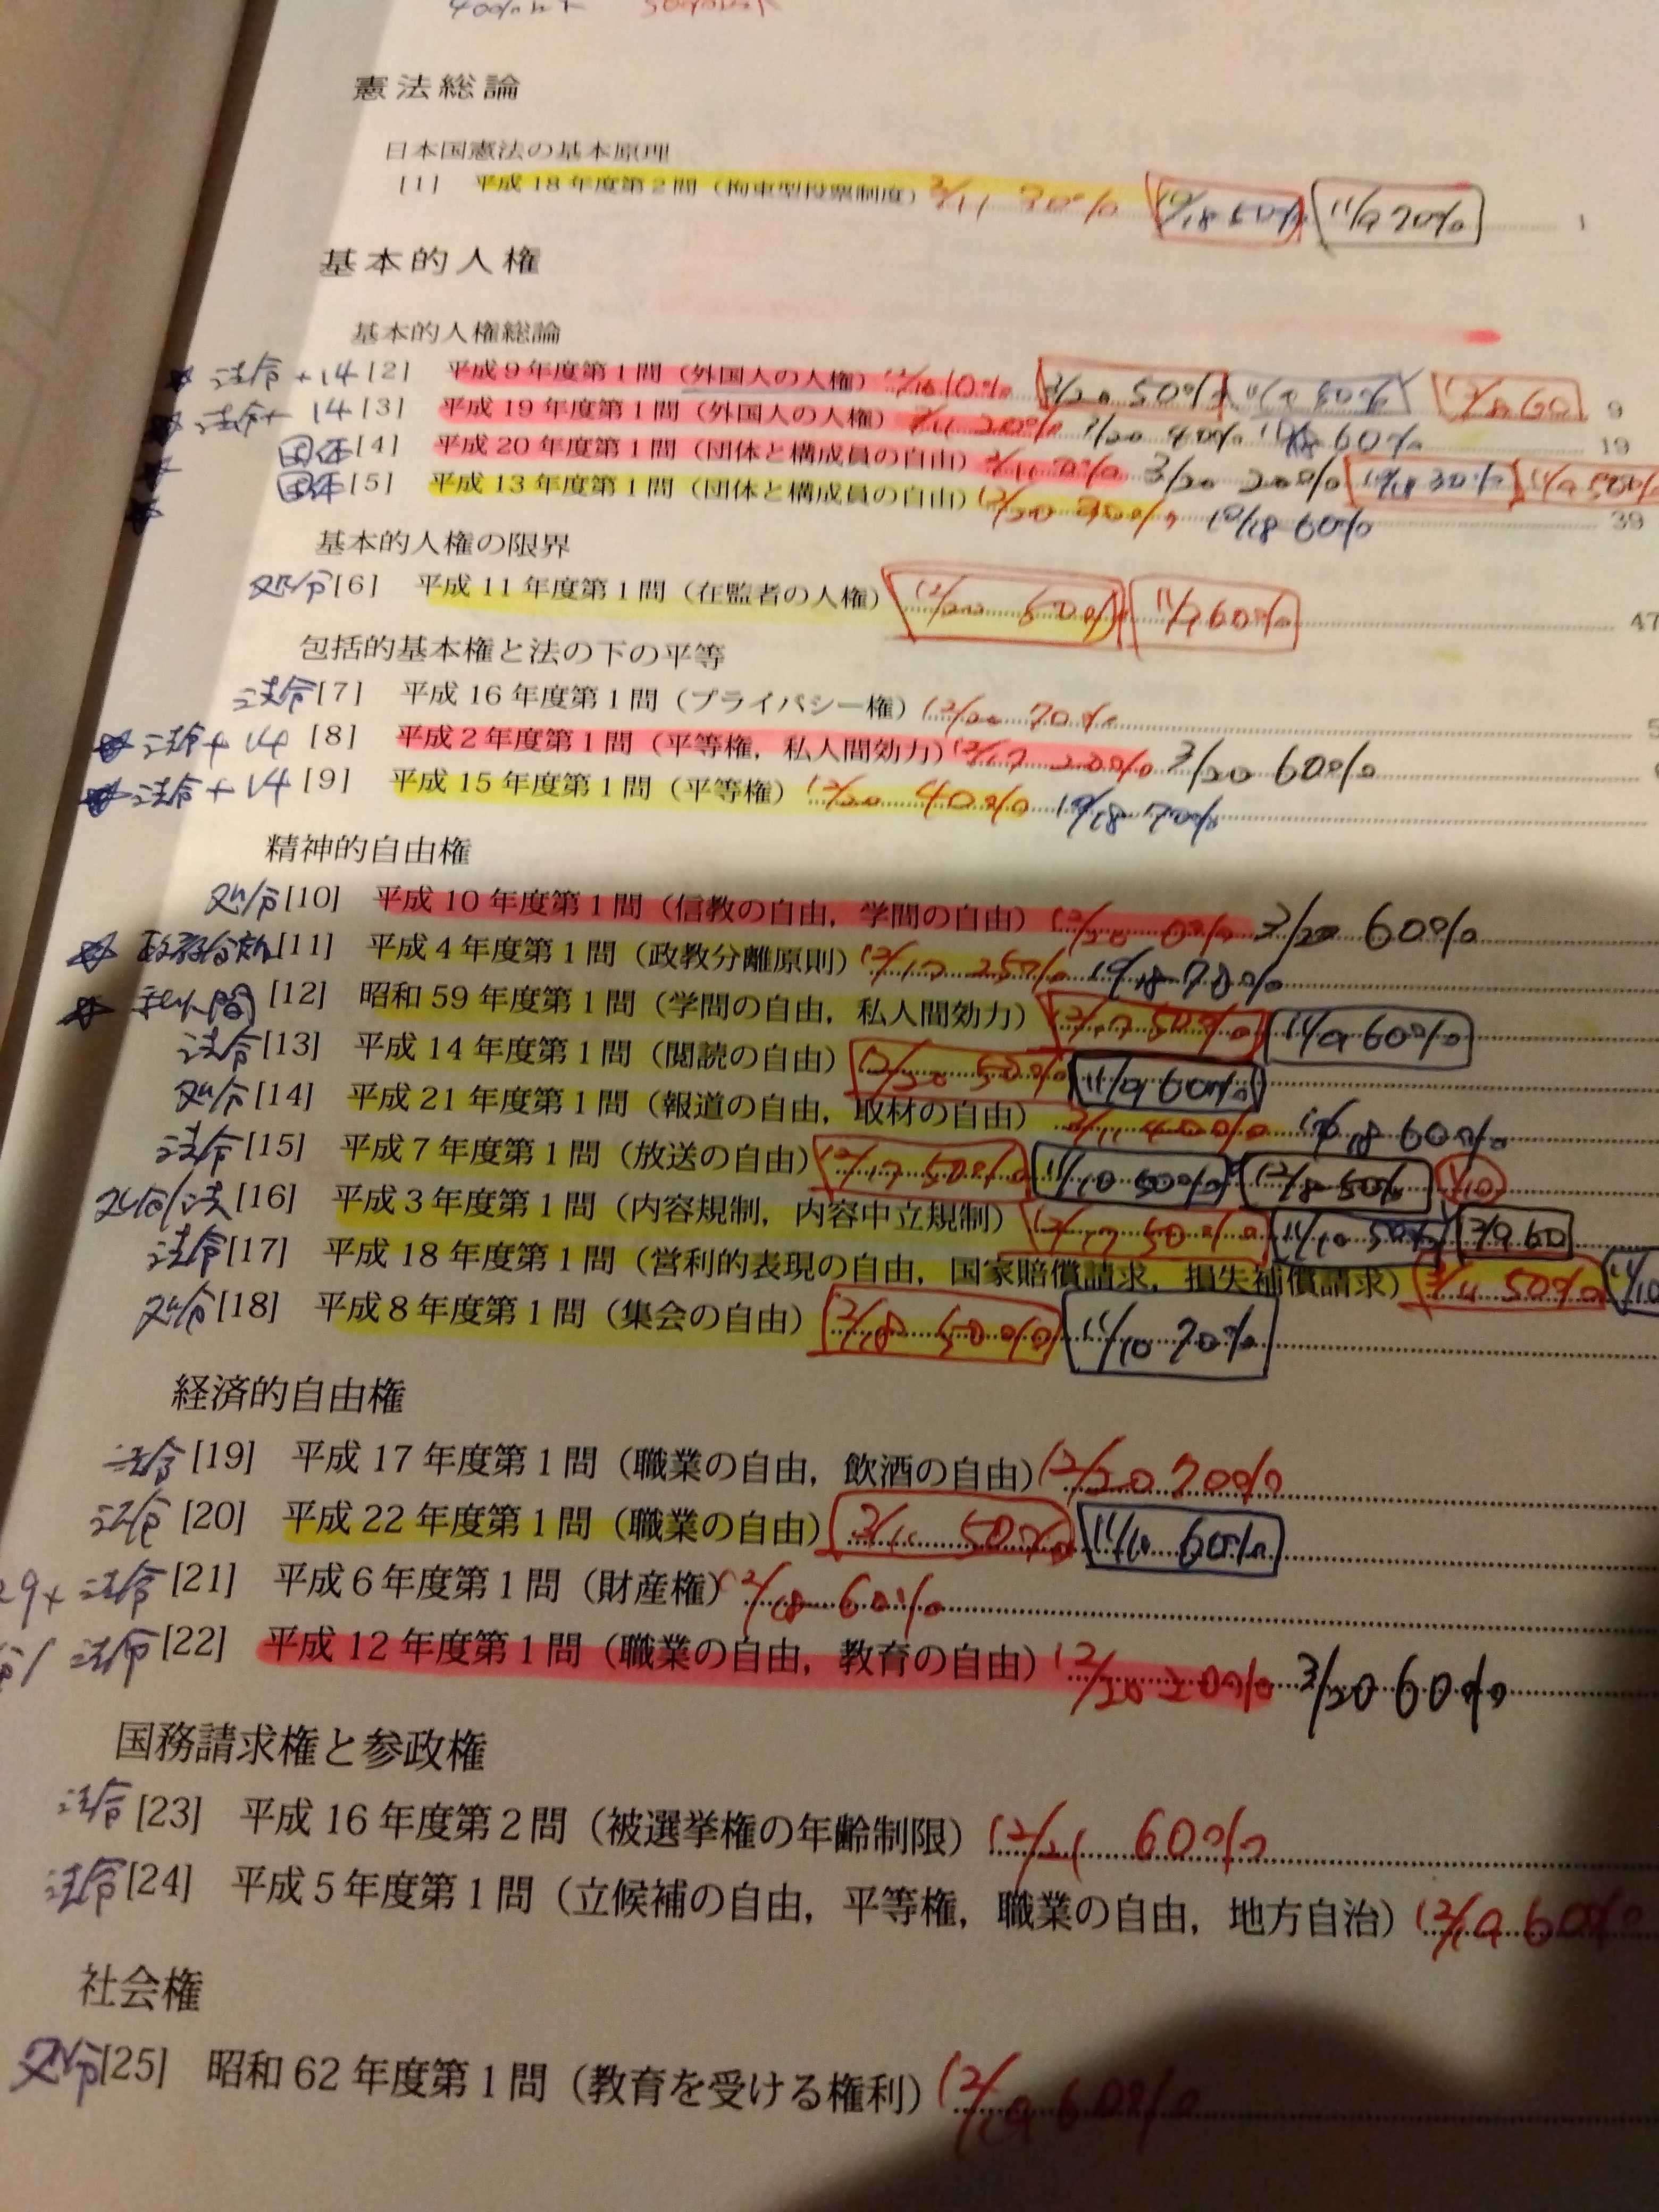 憲法総論
日本国憲法の基本原理
[1] 平成18年度第2問（拘束型投票制度） 70% 10/18 50% 11/9 70% 1
基本的人権
基本的人権総論
法令+14 [2] 平成9年度第1問（外国人の人権） 10% 3/20 50% 11/9 50% 12/8 60 9
法令+14 [3] 平成19年度第1問（外国人の人権） 20% 3/20 40% 60% 19
団体 [4] 平成20年度第1問（団体と構成員の自由） 0% 3/20 20% 10/18 30% 11/9 50%
団体 [5] 平成13年度第1問（団体と構成員の自由） 12/20 10/18 60% 39
基本的人権の限界
処分 [6] 平成11年度第1問（在監者の人権） 12/20 50% 11/9 60% 47
包括的基本権と法の下の平等
法令 [7] 平成16年度第1問（プライバシー権） 12/20 70% 5
法令+14 [8] 平成2年度第1問（平等権，私人間効力） 12/17 20% 3/20 60%
法令+14 [9] 平成15年度第1問（平等権） 12/20 40% 10/18 70%
精神的自由権
処分 [10] 平成10年度第1問（信教の自由，学問の自由） 12/20 0% 3/20 60%
政教分離 [11] 平成4年度第1問（政教分離原則） 12/17 25% 10/18 70%
私人間 [12] 昭和59年度第1問（学問の自由，私人間効力） 12/17 50% 11/9 60%
法令 [13] 平成14年度第1問（閲読の自由） 12/20 50% 11/9 60%
処分 [14] 平成21年度第1問（報道の自由，取材の自由） 3/11 40% 10/18 60%
法令 [15] 平成7年度第1問（放送の自由） 12/17 50% 11/10 50% 12/8 50% 1/10
処分/法 [16] 平成3年度第1問（内容規制，内容中立規制） 12/17 50% 11/10 50% 12/9 60
法令 [17] 平成18年度第1問（営利的表現の自由，国家賠償請求，損失補償請求） 3/11 50% 11/10
処分 [18] 平成8年度第1問（集会の自由） 12/18 50% 11/10 70%
経済的自由権
法令 [19] 平成17年度第1問（職業の自由，飲酒の自由） 12/20 70%
法令 [20] 平成22年度第1問（職業の自由） 3/11 50% 11/10 60%
29+法令 [21] 平成6年度第1問（財産権） 12/18 60%
分/法令 [22] 平成12年度第1問（職業の自由，教育の自由） 12/20 20% 3/20 60%
国務請求権と参政権
法令 [23] 平成16年度第2問（被選挙権の年齢制限） 12/21 60%
法令 [24] 平成5年度第1問（立候補の自由，平等権，職業の自由，地方自治） 12/19 60%
社会権
処分 [25] 昭和62年度第1問（教育を受ける権利） 12/19 60%